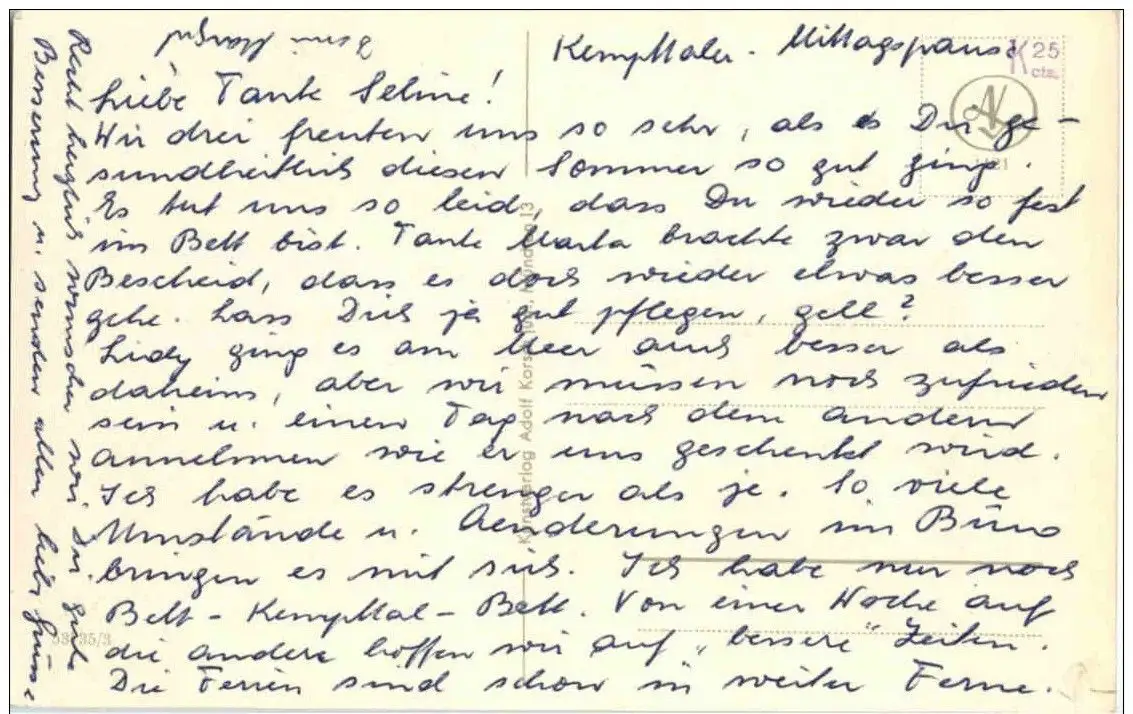 Kempttaler - Mittagspause
Liebe Tante Seline!
Wir drei freuten uns so sehr, als es Dir ge-
sundheitlich diesen Sommer so gut ging.
Es tut uns so leid, dass Du wieder so fest
im Bett bist. Tante Marta brachte zwar den
Bescheid, dass es doch wieder etwas besser
gehe. Lass Dich ja gut pflegen, gell?
Lidy ging es am Meer auch besser als
daheim, aber wir müssen noch zufrieden
sein u. einen Tag nach dem andern
annehmen wie er uns geschenkt wird.
Ich habe es strenger als je. So viele
Umstände u. Aenderungen im Büro
bringen es mit sich. Ich habe nur noch
Bett - Kempttal - Bett. Von einer Woche auf
die andere hoffen wir auf "bessere" Zeiten.
Die Ferien sind schon in weiter Ferne.
Recht herzlich wünschen wir Dir gute
Besserung u. senden allen liebe Grüsse
K 25
cts.
Kunstverlag Adolf Korsch, München 13